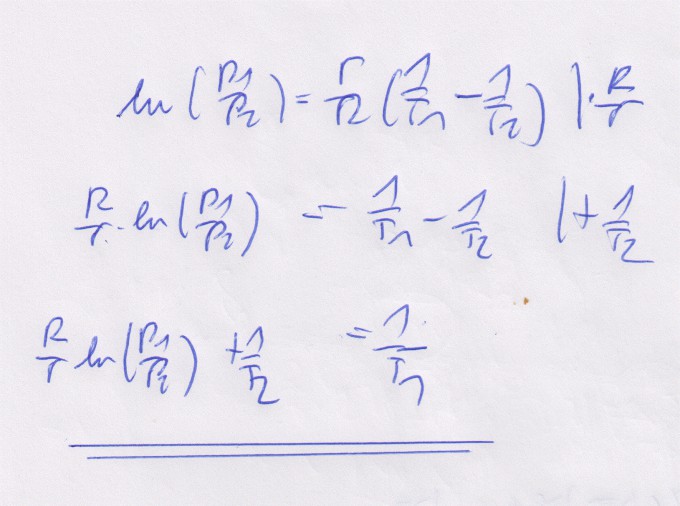 ln(P1/P2) = r/R (1/T1 - 1/T2) | · R/r
R/r · ln(P1/P2) = 1/T1 - 1/T2 | + 1/T2
R/r ln(P1/P2) + 1/T2 = 1/T1